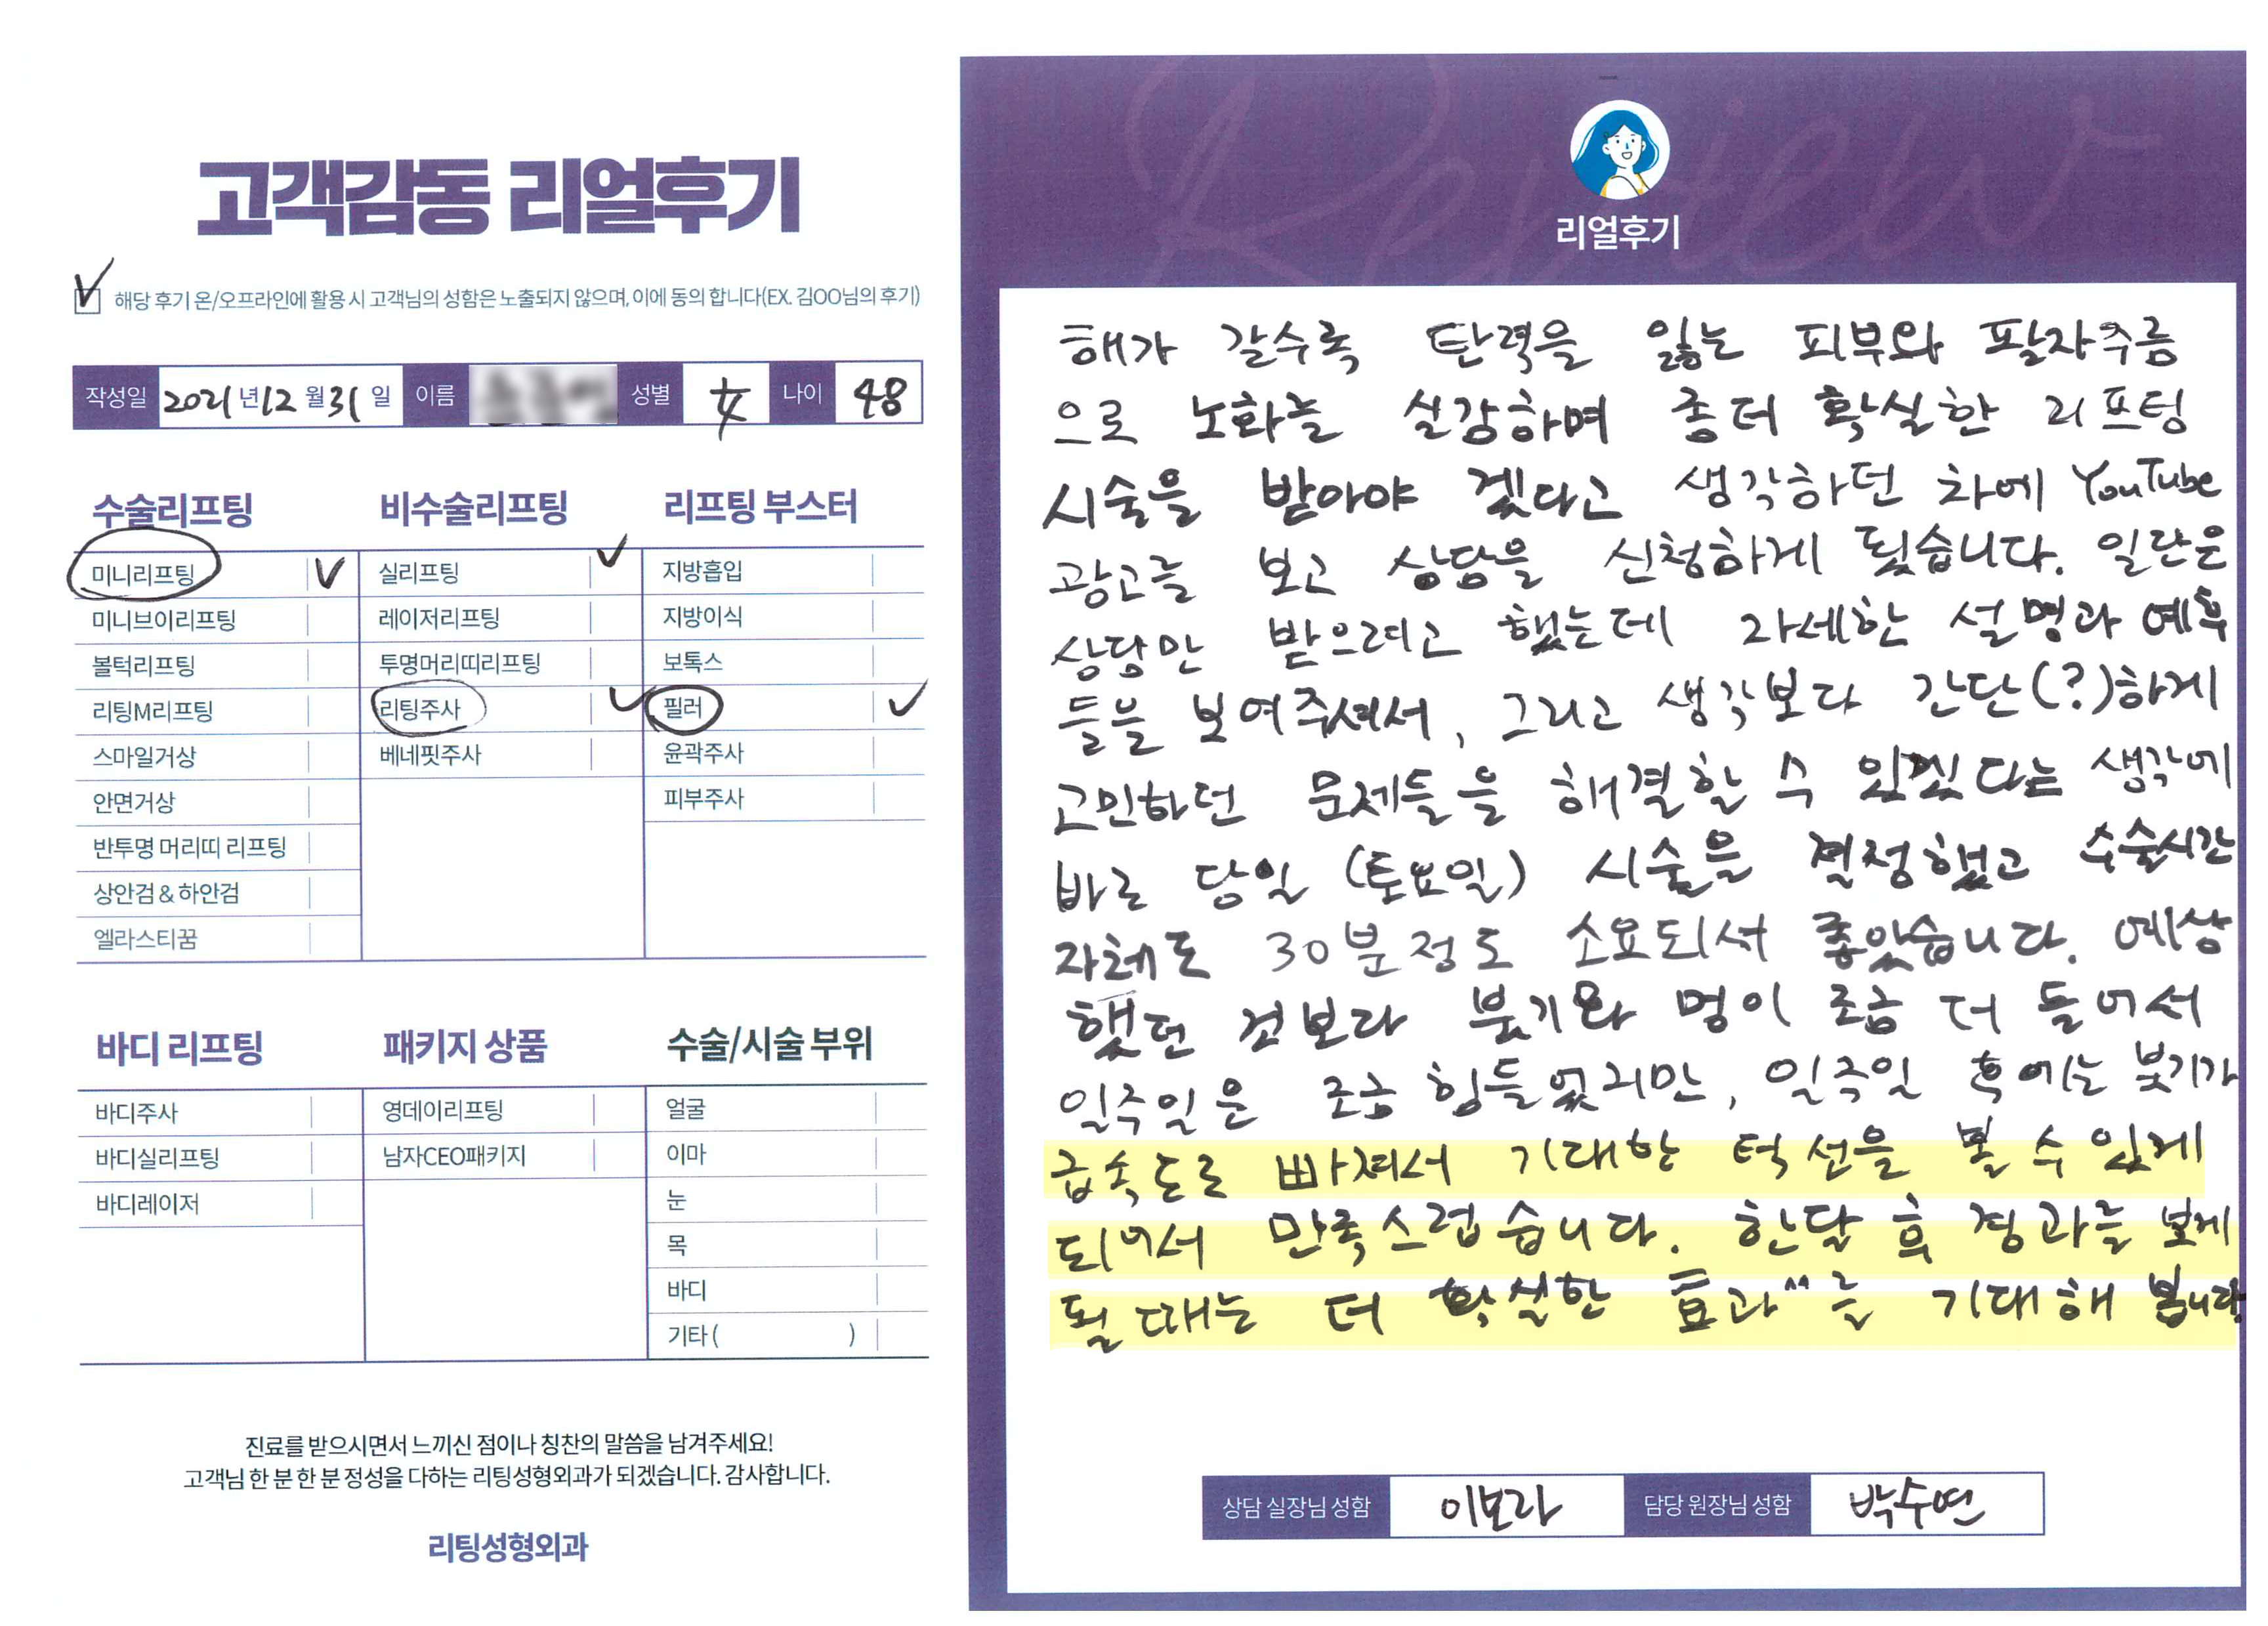 고객감동 리얼후기
해당 후기 온/오프라인에 활용 시 고객님의 성함은 노출되지 않으며, 이에 동의 합니다(EX. 김OO님의 후기)
작성일 2021년 12월 31일 이름 성별 女 나이 48
수술리프팅
미니리프팅
미니브이리프팅
볼턱리프팅
리팅M리프팅
스마일거상
안면거상
반투명 머리띠 리프팅
상안검 & 하안검
엘라스티꿈
비수술리프팅
실리프팅
레이저리프팅
투명머리띠리프팅
리팅주사
베네핏주사
리프팅 부스터
지방흡입
지방이식
보톡스
필러
윤곽주사
피부주사
바디 리프팅
바디주사
바디실리프팅
바디레이저
패키지 상품
영데이리프팅
남자CEO패키지
수술/시술 부위
얼굴
이마
눈
목
바디
기타 ( )
진료를 받으시면서 느끼신 점이나 칭찬의 말씀을 남겨주세요!
고객님 한 분 한 분 정성을 다하는 리팅성형외과가 되겠습니다. 감사합니다.
리팅성형외과
Review
리얼후기
해가 갈수록 탄력을 잃는 피부와 팔자주름
으로 노화를 실감하며 좀더 확실한 리프팅
시술을 받아야 겠다고 생각하던 차에 YouTube
광고를 보고 상담을 신청하게 됬습니다. 일단은
상담만 받으려고 했는데 자세한 설명과 예후
들을 보여주셔서, 그리고 생각보다 간단(?)하게
고민하던 문제들을 해결할 수 있겠다는 생각에
바로 당일 (토요일) 시술을 결정했고 수술시간
자체도 30분정도 소요되서 좋았습니다. 예상
했던 것보다 붓기와 멍이 조금 더 들어서
일주일은 조금 힘들었지만, 일주일 후에는 붓기가
급속도로 빠져서 기대한 턱선을 볼 수 있게
되어서 만족스럽습니다. 한달 후 경과를 보게
될 때는 더 확실한 효과를 기대해 봅니다
상담 실장님 성함 이보라 담당 원장님 성함 박수연